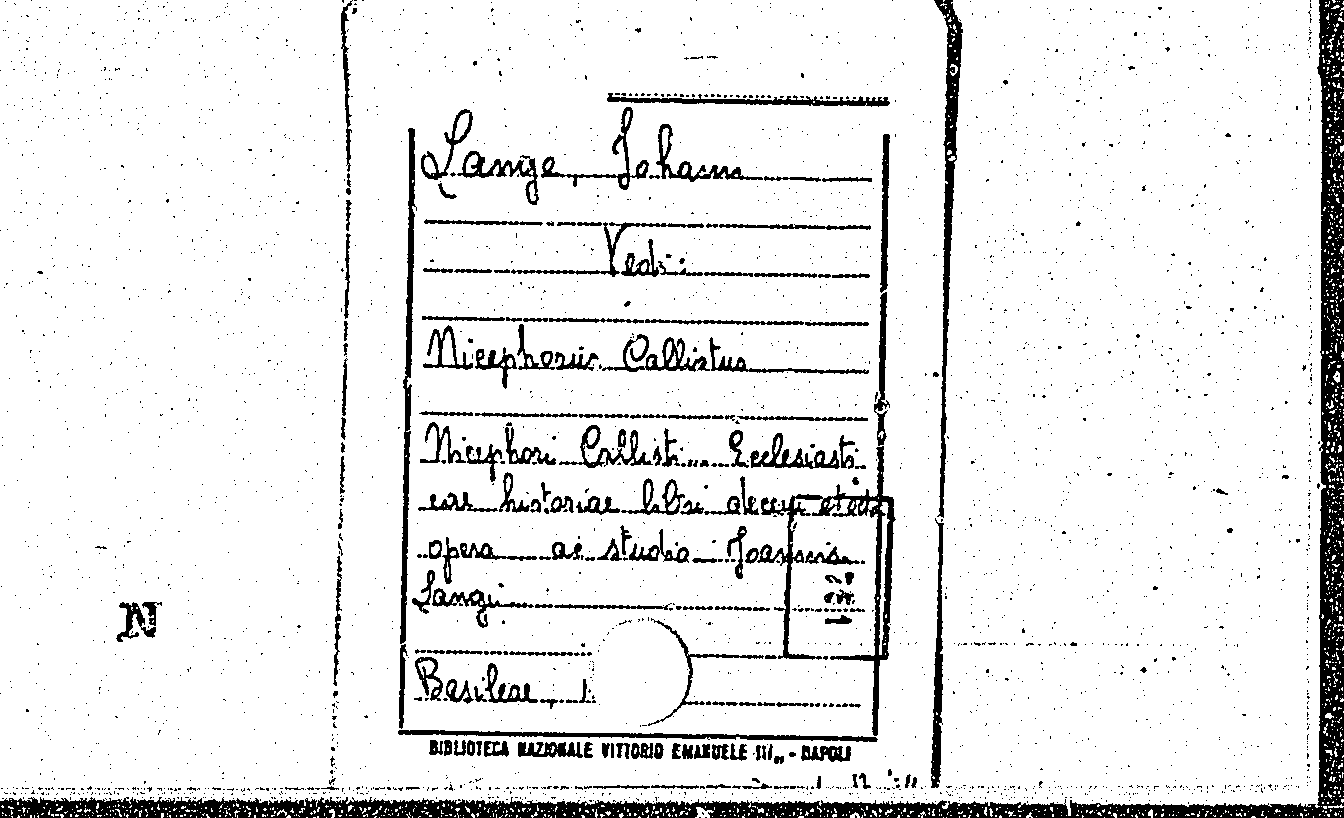 Lange, Johann
Vedi:
Nicephorus Callistus
Nicephori Callisti... Ecclesiasti
cae historiae libri decem et octo
opera ac studio Joannis
Langi
N
Basileae,
BIBLIOTECA NAZIONALE VITTORIO EMANUELE III„ - NAPOLI